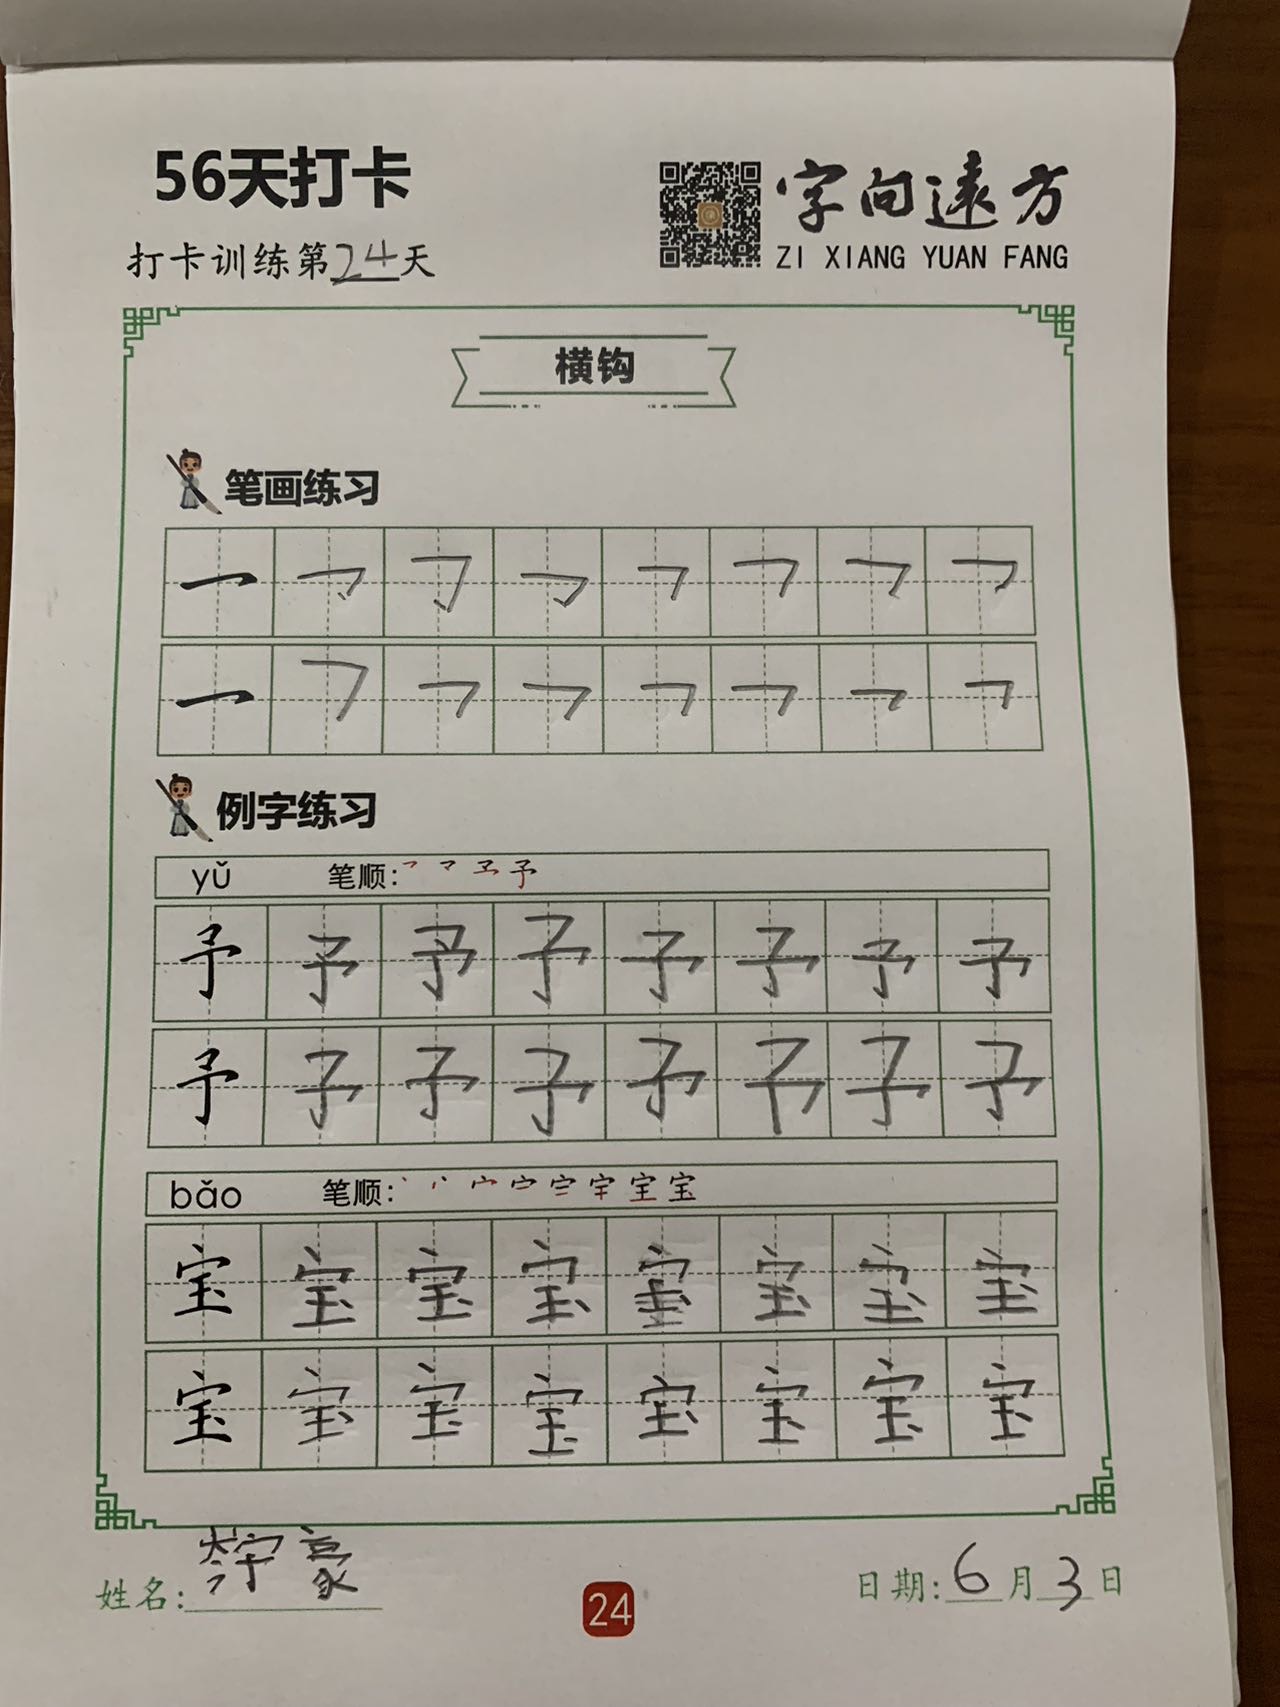 56天打卡
字向遠方
打卡训练第24天
ZI XIANG YUAN FANG
横钩
笔画练习
例字练习
yǔ 笔顺:
予 予 予 予 予 予 予 予
予 予 予 予 予 予 予 予
bǎo 笔顺:
宝 宝 宝 宝 宝 宝 宝 宝
宝 宝 宝 宝 宝 宝 宝 宝
姓名: 豪
24
日期:6月3日